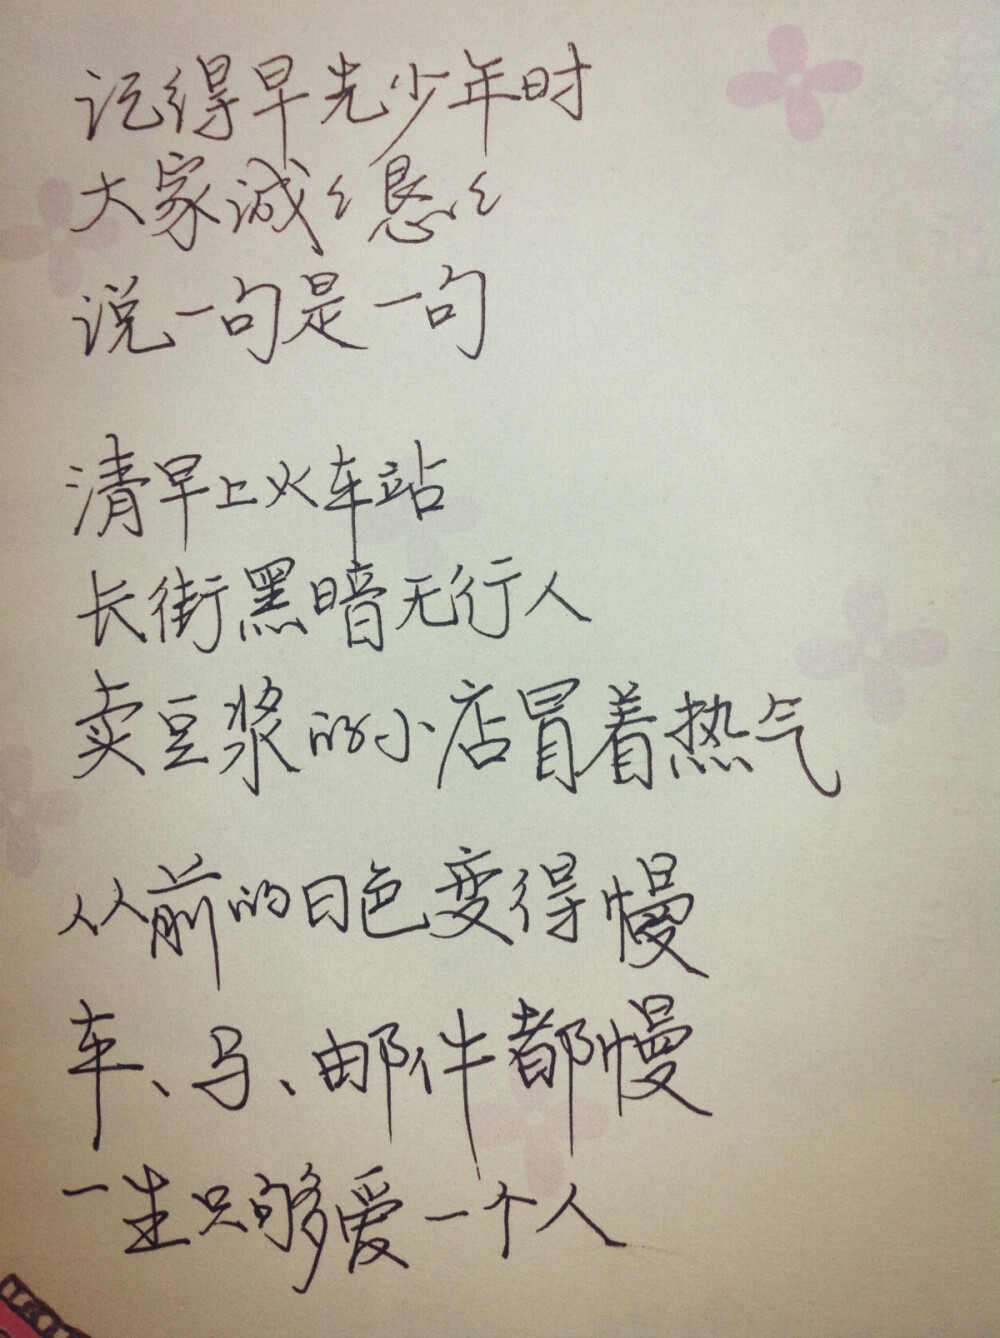 记得早先少年时
大家诚々恳々
说一句是一句
清早上火车站
长街黑暗无行人
卖豆浆的小店冒着热气
从前的日色变得慢
车、马、邮件都慢
一生只够爱一个人